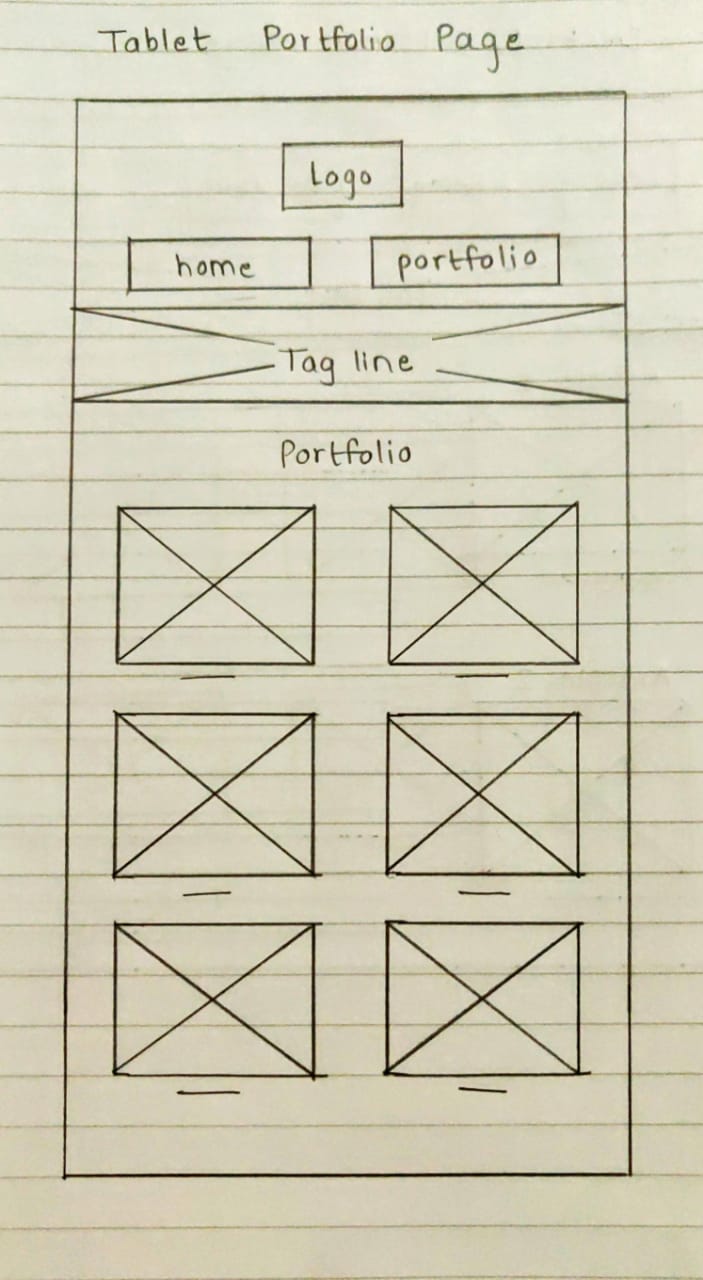 Tablet Portfolio Page
Logo
home portfolio
Tag line
Portfolio